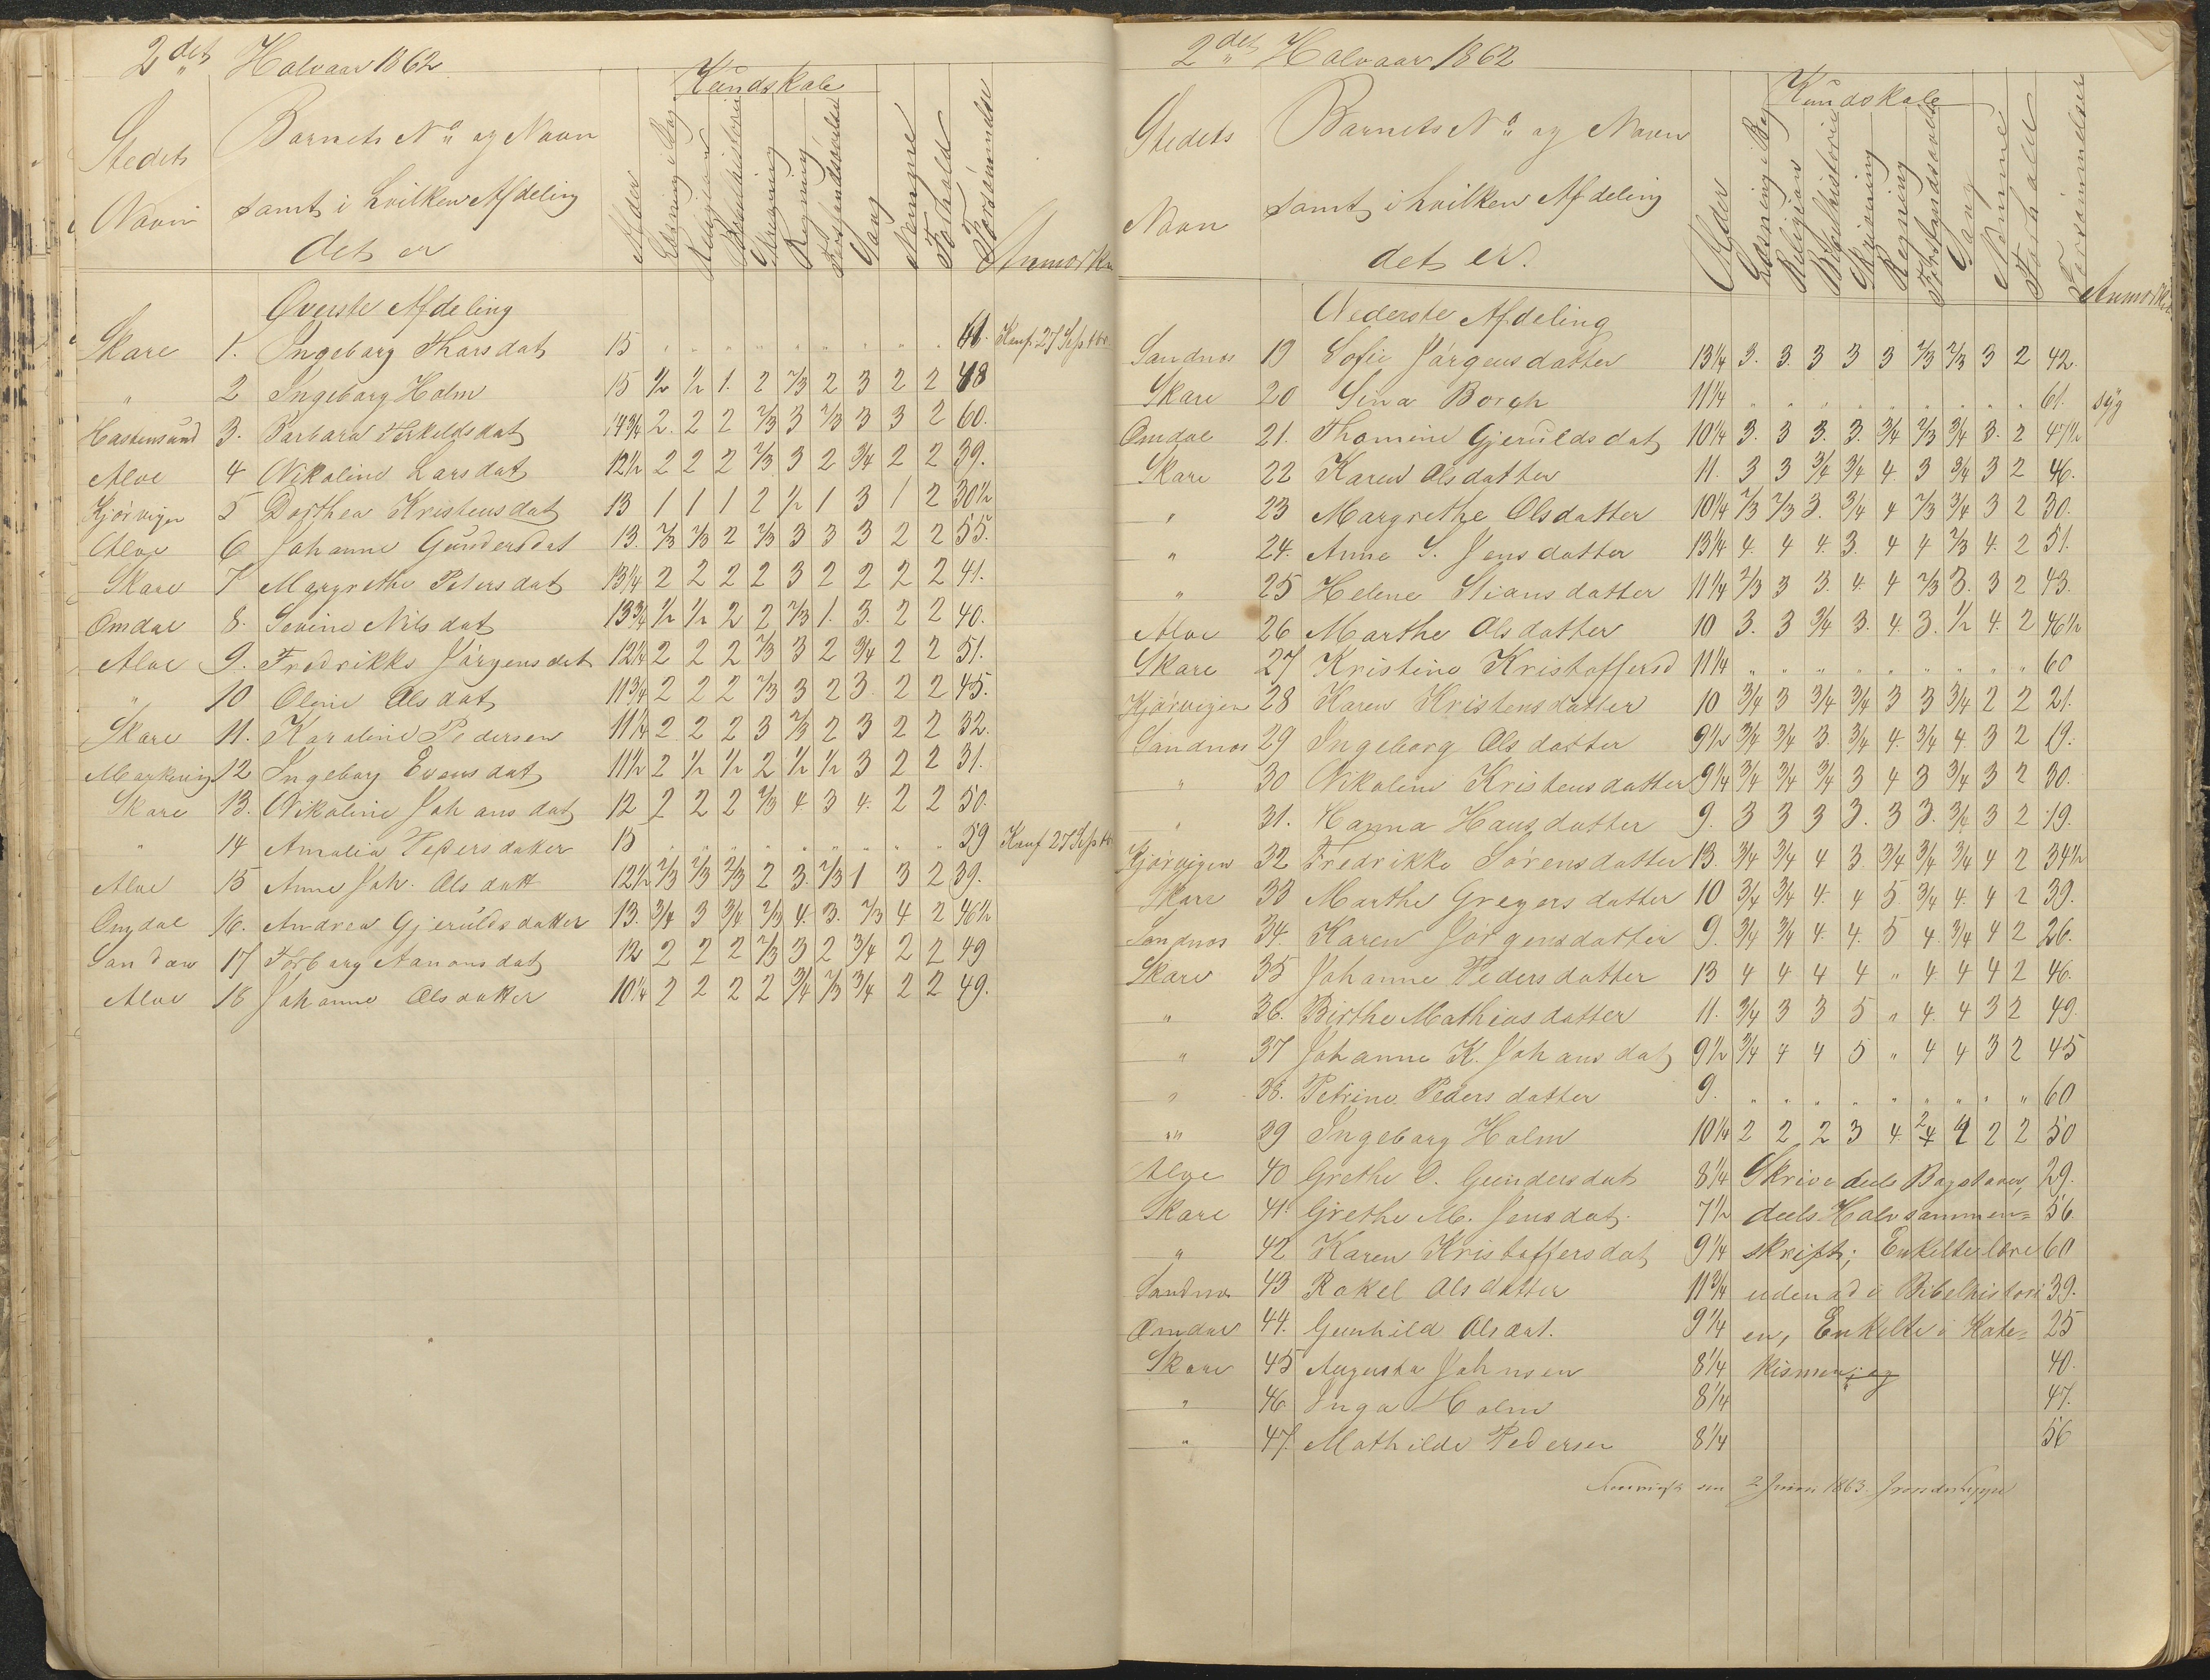 2det Halvaar 1862
Stedets Navn
Barnets No og Navn samt i hvilken Afdeling det er
Alder
Kundskab
Læsning i Bog
Religion
Bibelhistorie
Skrivning
Regning
Forstandsøvelse
Sang
Nemme
Forhold
Forsømmelse
Anmærkn
Øverste Afdeling
Skare 1. Ingeborg Thorsdat 15 " " " " " " " " " 61. Konf. 27 Septbr
" 2 Ingeborg Holm 15 1/2 1/2 1. 2 2/3 2 3 2 2 48
3. Barbara Terkeldsdat 14 3/4 2. 2 2 2/3 3 2/3 3 3 2 60.
Aloe 4 Nikoline Larsdat 12 1/2 2 2 2 2/3 3 2 3/4 2 2 39.
Kjørvigen 5 Dorthea Kristensdat 13 1 1 1 2 1/2 1 3 1 2 30 1/2
Aloe 6 Johanne Gundersdat 13. 2/3 2/3 2 2/3 3 3 3 2 2 55.
Skare 7 Margrethe Petersdat 13 1/4 2 2 2 2 3 2 2 2 2 41.
Omdal 8. Sevine Nilsdat 13 3/4 1/2 1/2 2 2 2/3 1. 3. 2 2 40.
Aloe 9. Fredrikke Jørgensdat 12 1/4 2 2 2 2/3 3 2 3/4 2 2 51.
" 10 Oline Olsdat 11 3/4 2 2 2 2/3 3 2 3 2 2 45.
Skare 11. Karoline Pedersen 11 1/4 2 2 2 3 2/3 2 3 2 2 32.
12 Ingeborg Evensdat 11 1/2 2 1/2 1/2 2 1/2 1/2 3 2 2 31.
Skare 13. Nikoline Johansdat 12 2 2 2 2/3 4. 3 4. 2 2 50.
" 14 Amalia Pedersdatter 15 " " " " " " " " " 59 Konf 27 Septbr
Aloe 15 Anne Joh. Olsdatt 12 1/2 2/3 2/3 2/3 2 3. 2/3 1 3 2 39.
Omdal 16. Andrea Gjeruldsdatter 13. 3/4 3 3/4 2/3 4. 3. 2/3 4 2 46 1/2
17 Torborg Aanonsdat 12 2 2 2 2/3 3 2 3/4 2 2 49
Aloe 18 Johanne Olsdatter 10 1/4 2 2 2 2 3/4 2/3 3/4 2 2 49.
2det Halvaar 1862
Stedets Navn
Barnets No og Navn samt i hvilken Afdeling det er.
Alder
Kundskab
Læsning i Bog
Religion
Bibelhistorie
Skrivning
Regning
Forstandsøvelse
Sang
Nemme
Forhold
Forsømmelser
Anmærkn
Nederste Afdeling
Sandnes 19 Sofie Jørgensdatter 13 1/4 3. 3. 3 3 3 2/3 2/3 3 2 42.
Skare 20 Sina Borgh 11 1/4 " " " " " " " " " 61. syg
Omdal 21. Thomine Gjeruldsdat 10 1/4 3. 3 3. 3. 3/4 2/3 3/4 3. 2 47 1/2
Skare 22 Karen Olsdatter 11. 3 3 3/4 3/4 4. 3 3/4 3 2 46.
" 23 Margrethe Olsdatter 10 1/4 2/3 2/3 3. 3/4 4 2/3 3/4 3 2 30.
" 24. Anne S. Jensdatter 13 1/4 4. 4 4. 3. 4 4 2/3 4. 2 51.
" 25 Helene Stiansdatter 11 1/4 2/3 3 3. 4. 4 2/3 3. 3 2 43.
Aloe 26 Marthe Olsdatter 10 3. 3 3/4 3. 4. 3. 1/2 4. 2 46 1/2
Skare 27 Kristine Kristoffersd 11 1/4 " " " " " " " " " 60
Kjørvigen 28 Karen Kristensdatter 10 3/4 3 3/4 3/4 3 3 3/4 2 2 21.
Sandnes 29 Ingeborg Olsdatter 9 1/2 3/4 3/4 3. 3/4 4. 3/4 4. 3 2 19.
" 30 Nikoline Kristensdatter 9 1/4 3/4 3/4 3/4 3 4 3 3/4 3 2 30.
" 31. Hanna Hansdatter 9. 3 3 3 3. 3 3. 3/4 3 2 19.
Kjørvigen 32 Fredrikke Sørensdatter 13. 3/4 3/4 4 3. 3/4 3/4 3/4 4 2 34 1/2
Skare 33 Marthe Gregersdatter 10 3/4 3/4 4. 4 5 3/4 4. 4 2 39.
Sandnes 34. Karen Jørgensdatter 9. 3/4 3/4 4. 4. 5 4. 3/4 4 2 26.
Skare 35 Johanne Pedersdatter 13 4 4 4 4 " 4. 4 4 2 46.
" 36. Birthe Mathiasdatter 11. 3/4 3 3 5 " 4. 4 3 2 49.
" 37 Johanne K. Johansdat 9 1/2 3/4 4 4 5 " 4 4 3 2 45
" 38. Petrine Pedersdatter 9. " " " " " " " " " 60
" 39 Ingeborg Holm 10 1/4 2 2 2 3 4 2 4 4 2 2 50
Aloe 40 Grethe O. Gundersdat 8 1/4 Skrive deels Bogstaver, 29.
Skare 41. Grethe M. Jensdat. 7 1/2 deels Halvsammen= 56.
" 42 Karen Kristoffersdat 9 1/4 skrift; Enkelte lære 60
Sandnes 43 Rakel Olsdatter 11 3/4 udenad i Bibelhistori 39.
Omdal 44. Gunhild Olsdat. 9 1/4 en, Enkelte i Kate= 25
Skare 45 Augusta Johnsen 8 1/4 kismen; og 40.
" 46 Inga Holm 8 1/4 47.
" 47 Mathilde Pedersen 8 1/4 56
2 Juni 1863.